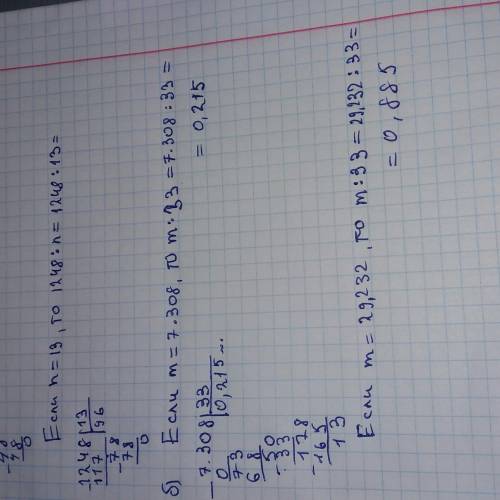 - 48
78
0
Если n=13, то 1248:n=1248:13=
- 1248 | 13
117 | 96
- 78
78
0
б) Если m=7.308, то m:33=7.308:33=
= 0,215
- 7.308 | 33
0 | 0,215...
73
68
- 50
33
- 178
165
13
Если m=29,232, то m:33=29,232:33=
= 0,885